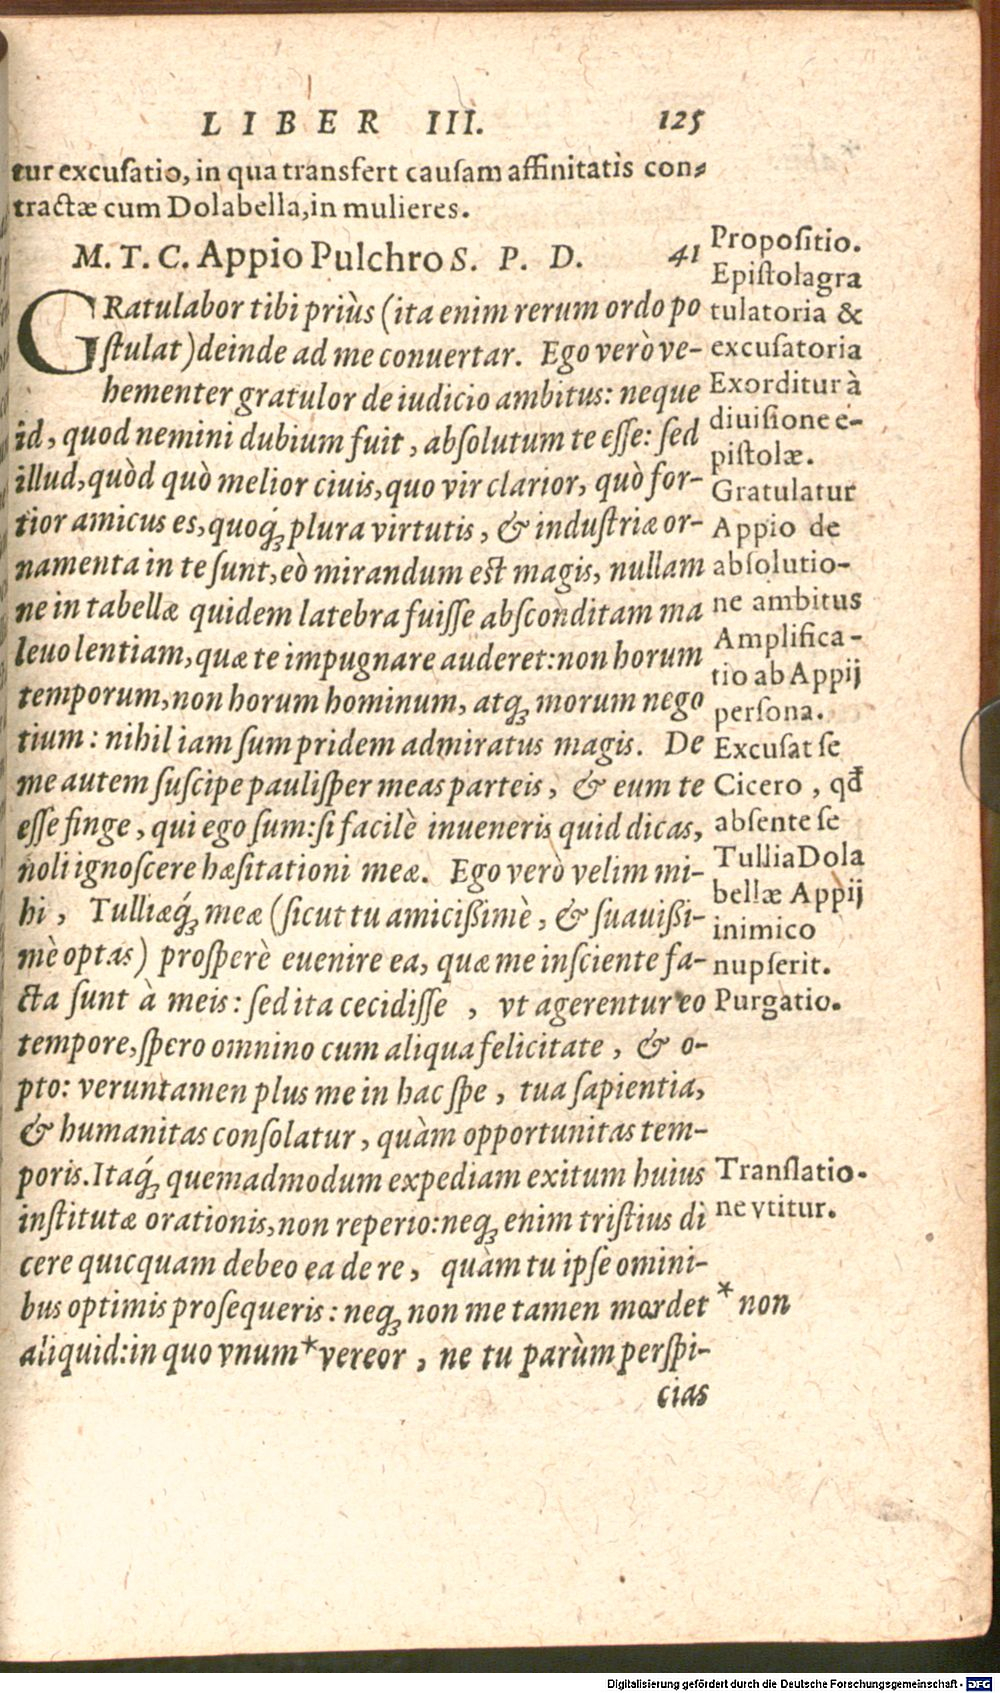 LIBER III. 125
tur excusatio, in qua transfert causam affinitatis con-
tractæ cum Dolabella, in mulieres.
M. T. C. Appio Pulchro S. P. D. 41
GRatulabor tibi priùs (ita enim rerum ordo po
ſtulat) deinde ad me conuertar. Ego verò ve-
hementer gratulor de iudicio ambitus: neque
id, quod nemini dubium fuit, abſolutum te eſſe: ſed
illud, quòd quò melior ciuis, quo vir clarior, quò for-
tior amicus es, quoq́; plura virtutis, & induſtriæ or-
namenta in te ſunt, eò mirandum eſt magis, nullam
ne in tabellæ quidem latebra fuiſſe abſconditam ma
leuolentiam, quæ te impugnare auderet: non horum
temporum, non horum hominum, atq; morum nego
tium: nihil iam ſum pridem admiratus magis. De
me autem ſuſcipe pauliſper meas parteis, & eum te
eſſe finge, qui ego ſum: ſi facilè inueneris quid dicas,
noli ignoſcere hæſitationi meæ. Ego verò velim mi-
hi, Tulliæq́; meæ (ſicut tu amicißimè, & ſuauißi-
mè optas) proſperè euenire ea, quæ me inſciente fa-
cta ſunt à meis: ſed ita cecidiſſe, vt agerentur eo
tempore, ſpero omnino cum aliqua felicitate, & o-
pto: veruntamen plus me in hac ſpe, tua ſapientia,
& humanitas conſolatur, quàm opportunitas tem-
poris. Itaq́; quemadmodum expediam exitum huius
inſtitutæ orationis, non reperio: neq; enim triſtius di
cere quicquam debeo ea de re, quàm tu ipſe omini-
bus optimis proſequeris: neq; non me tamen mordet
aliquid: in quo vnum * vereor, ne tu parùm perſpi-
cias
Propoſitio.
Epiſtola gra
tulatoria &
excuſatoria
Exorditur à
diuiſione e-
piſtolæ.
Gratulatur
Appio de
abſolutio-
ne ambitus
Amplifica-
tio ab Appij
perſona.
Excuſat ſe
Cicero, qđ
abſente ſe
Tullia Dola
bellæ Appij
inimico
nupſerit.
Purgatio.
Tranſlatio-
ne vtitur.
* non
Digitalisierung gefördert durch die Deutsche Forschungsgemeinschaft - DFG